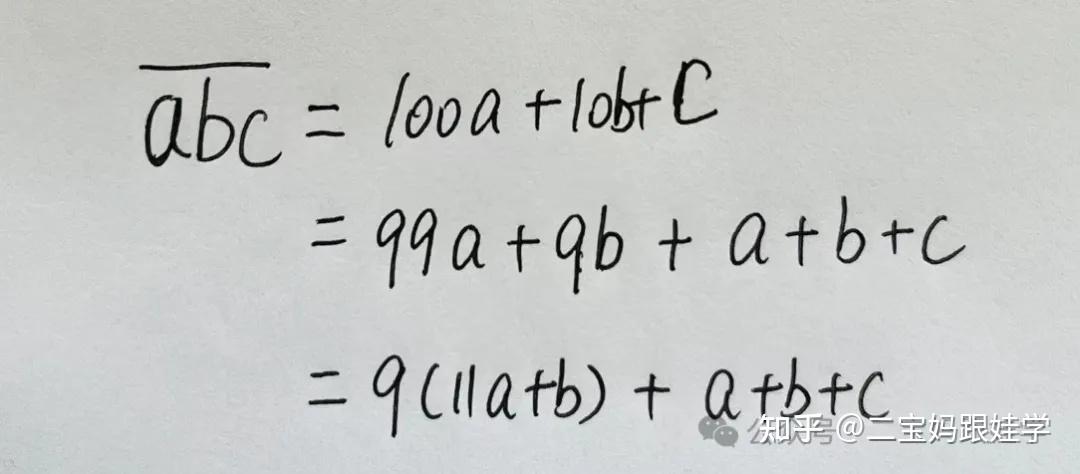 abc = 100a + 10b + c
= 99a + 9b + a + b + c
= 9(11a+b) + a+b+c
知乎 @二宝妈跟娃学